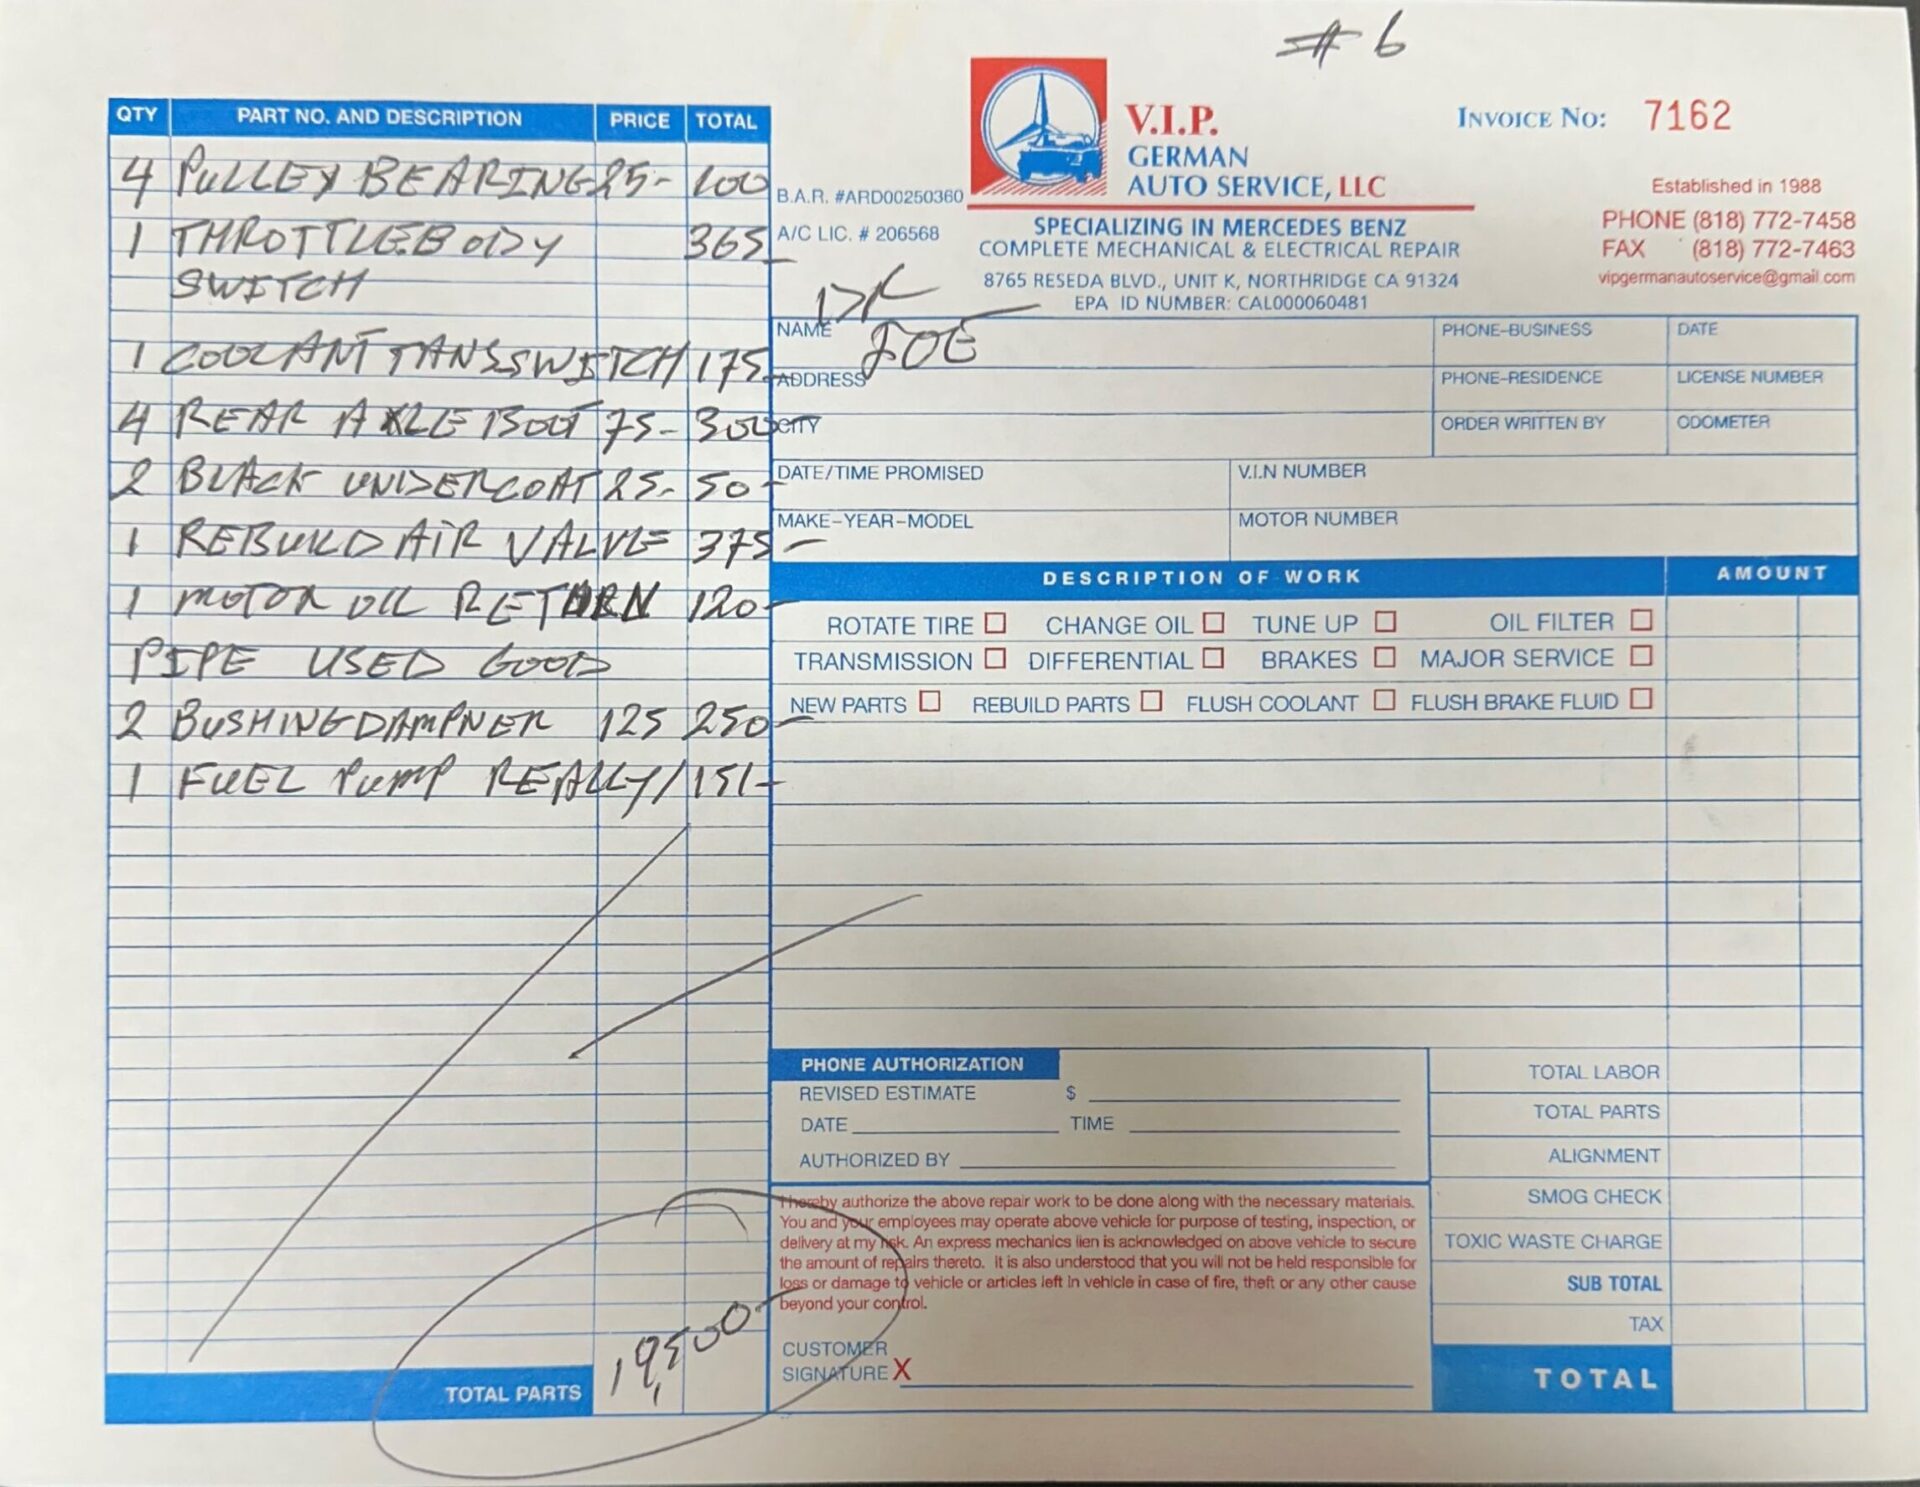 # 6
QTY PART NO. AND DESCRIPTION PRICE TOTAL
4 PULLEY BEARING 25- 100
1 THROTTLEBODY 365-
SWITCH
1 COOLANT TANSSWITCH 175-
4 REAR AXLE BOOT 75- 300
2 BLACK UNDERCOAT 25- 50-
1 REBUILD AIR VALVE 375-
1 MOTOR OIL RETURN 120-
PIPE USED GOOD
2 BUSHING DAMPNER 125 250-
1 FUEL PUMP REALLY/ 151-
TOTAL PARTS 19,500-
B.A.R. #ARD00250360
A/C LIC. # 206568
V.I.P.
GERMAN
AUTO SERVICE, LLC
SPECIALIZING IN MERCEDES BENZ
COMPLETE MECHANICAL & ELECTRICAL REPAIR
8765 RESEDA BLVD., UNIT K, NORTHRIDGE CA 91324
EPA ID NUMBER: CAL000060481
INVOICE NO: 7162
Established in 1988
PHONE (818) 772-7458
FAX (818) 772-7463
vipgermanautoservice@gmail.com
NAME JOE PHONE-BUSINESS DATE
ADDRESS PHONE-RESIDENCE LICENSE NUMBER
CITY ORDER WRITTEN BY ODOMETER
DATE/TIME PROMISED V.I.N NUMBER
MAKE-YEAR-MODEL MOTOR NUMBER
DESCRIPTION OF WORK AMOUNT
ROTATE TIRE CHANGE OIL TUNE UP OIL FILTER
TRANSMISSION DIFFERENTIAL BRAKES MAJOR SERVICE
NEW PARTS REBUILD PARTS FLUSH COOLANT FLUSH BRAKE FLUID
PHONE AUTHORIZATION
REVISED ESTIMATE $
DATE TIME
AUTHORIZED BY
I hereby authorize the above repair work to be done along with the necessary materials.
You and your employees may operate above vehicle for purpose of testing, inspection, or
delivery at my risk. An express mechanics lien is acknowledged on above vehicle to secure
the amount of repairs thereto. It is also understood that you will not be held responsible for
loss or damage to vehicle or articles left in vehicle in case of fire, theft or any other cause
beyond your control.
CUSTOMER
SIGNATURE X
TOTAL LABOR
TOTAL PARTS
ALIGNMENT
SMOG CHECK
TOXIC WASTE CHARGE
SUB TOTAL
TAX
TOTAL